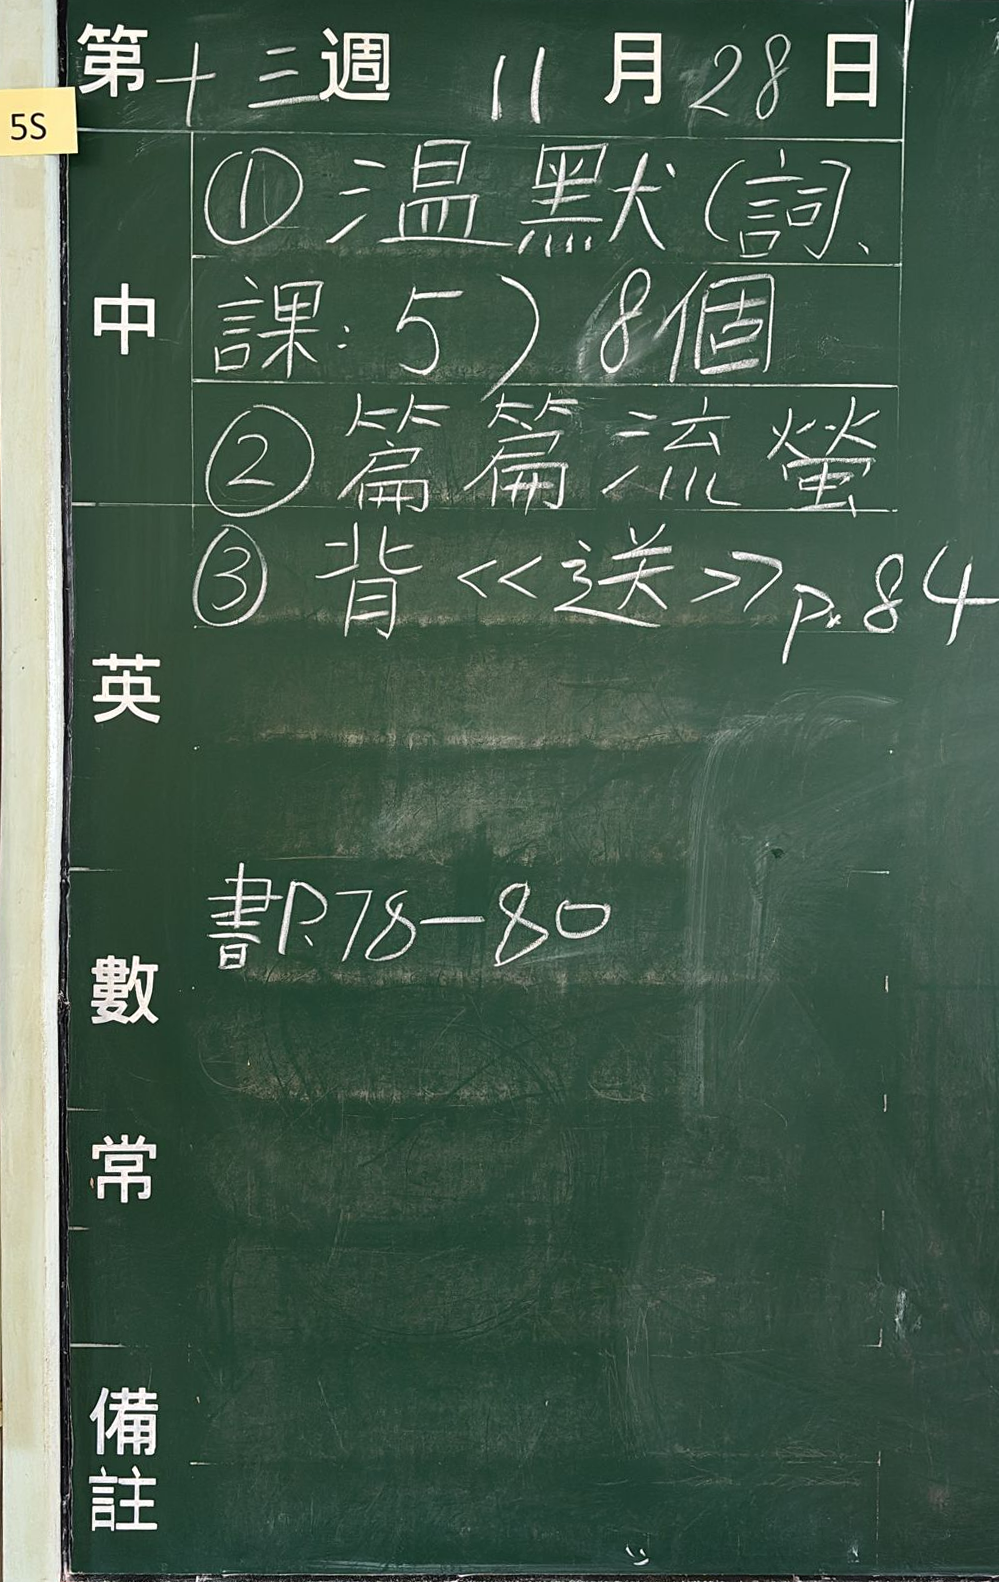 第十三週 11月28日
5S
①温默(詞、
中
課:5)8個
②篇篇流螢
③背<<送>>p.84
英
書P.78-80
數
常
備
註